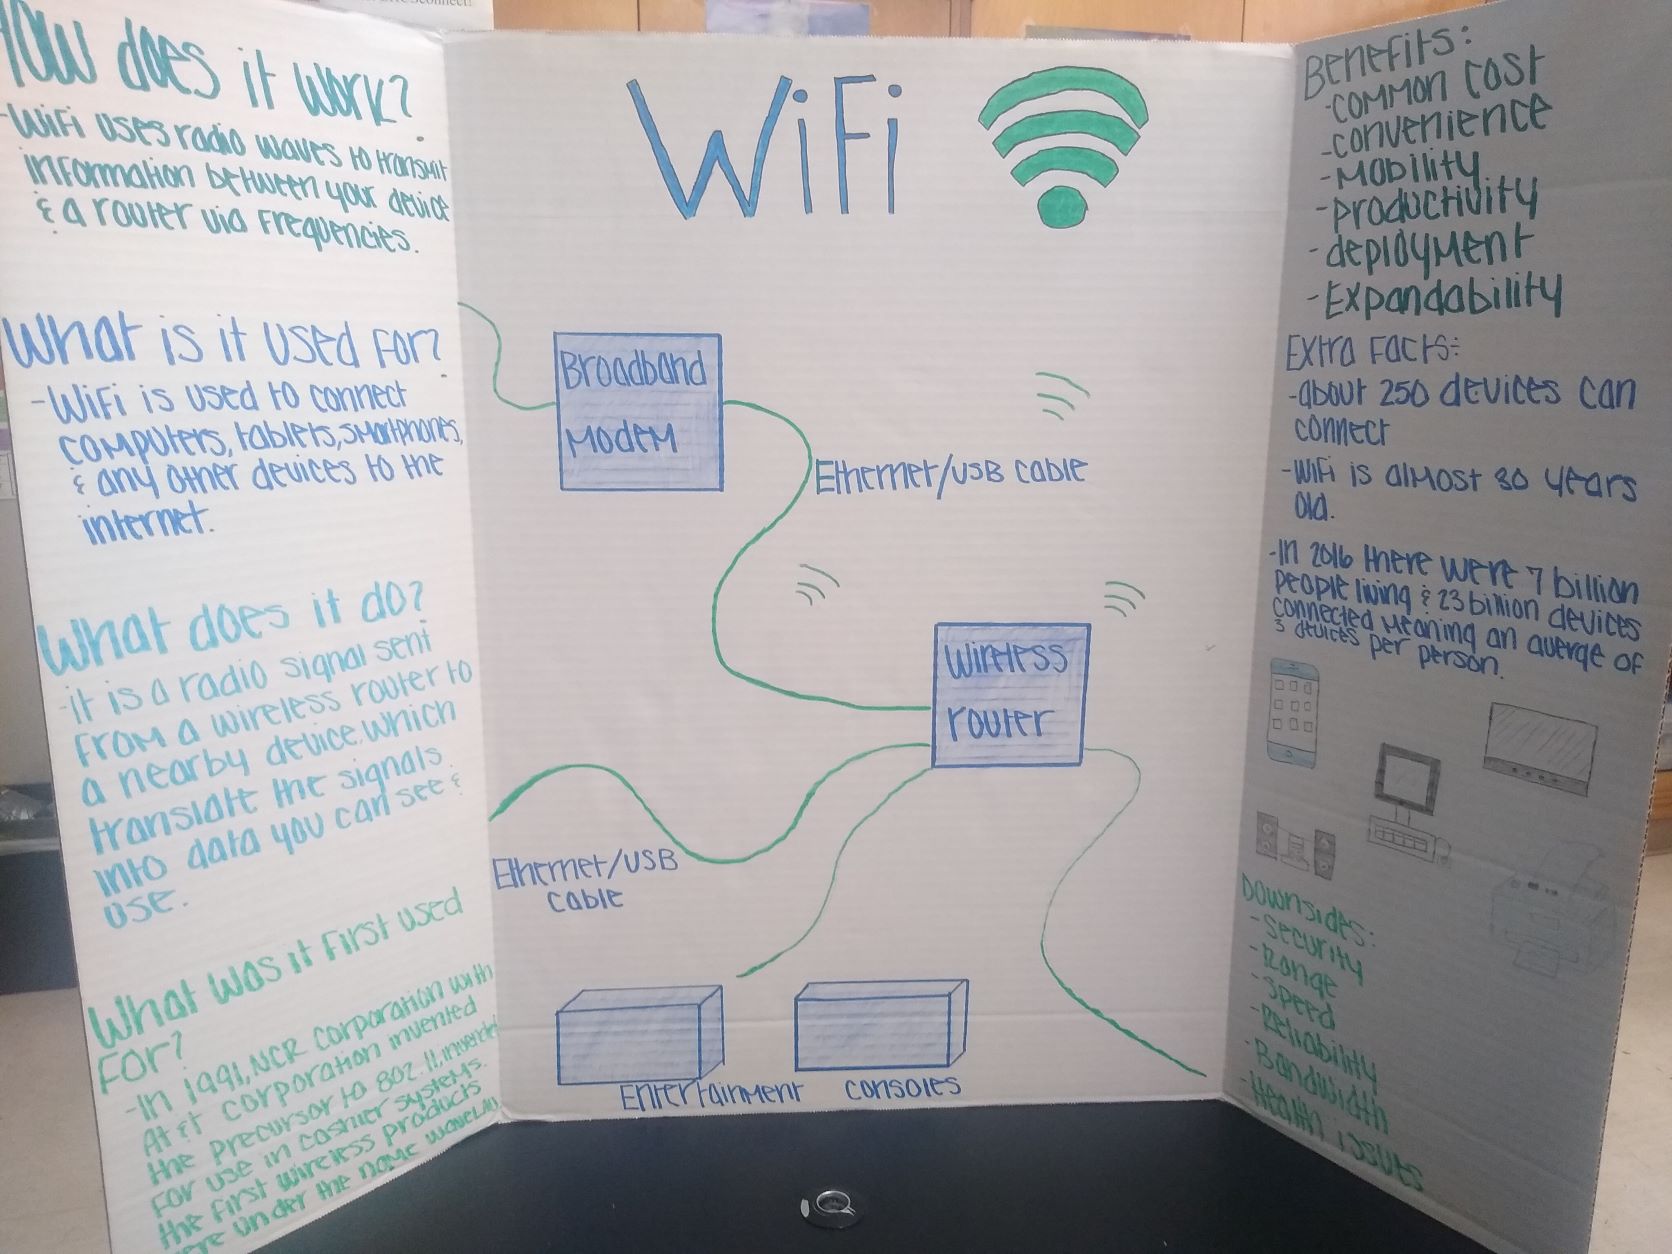 How does it work?
-WiFi uses radio waves to transmit
information between your device
& a router via frequencies.
What is it used for?
-WiFi is used to connect
computers, tablets, smartphones,
& any other devices to the
internet.
What does it do?
-it is a radio signal sent
from a wireless router to
a nearby device, which
translate the signals
into data you can see &
use.
What was it first used
for?
-In 1991, NCR corporation with
At&t corporation invented
the precursor to 802.11, invented
for use in cashier systems.
the first wireless products
were under the name waveLAN
WiFi
Broadband
Modem
Ethernet/USB cable
Wireless
router
Ethernet/USB
cable
Entertainment consoles
Benefits:
-common cost
-convenience
-Mobility
-productivity
-deployment
-Expandability
Extra Facts:
-about 250 devices can
connect
-WiFi is almost 30 years
old.
-In 2016 there were 7 billion
people living & 23 billion devices
connected meaning an averge of
3 devices per person.
Downsides:
-Security
-Range
-Speed
-Reliability
-Bandwidth
-Health issues